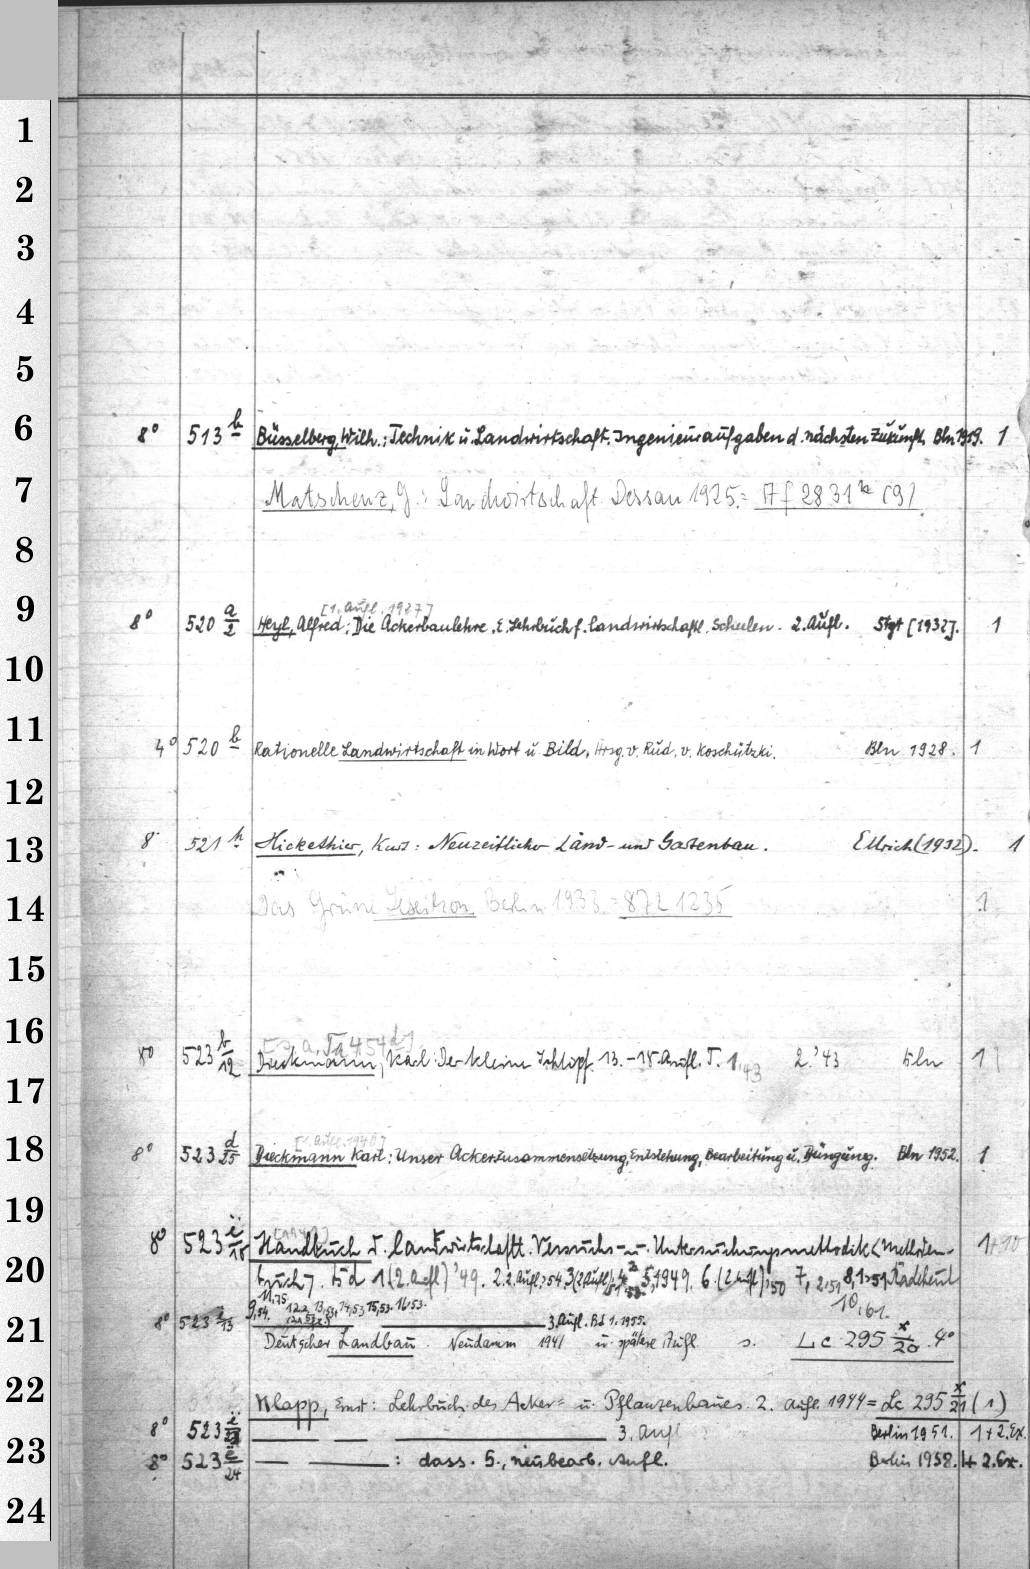 1
2
3
4
5
6
8° 513 b Büsselberg, Wilh.: Technik u. Landwirtschaft. Ingenieuraufgaben d. nächsten Zukunft. Bln 1959. 1
7
Matschenz, G.: Landwirtschaft. Dessau 1925. = Af 2831 (9)
8
9
[1. Aufl. 1927]
8° 520 a/2 Heyl, Alfred: Die Ackerbaulehre. E. Lehrbuch f. landwirtschaftl. Schulen. 2. Aufl. Stgt [1932]. 1
10
11
4° 520 b Rationelle Landwirtschaft in Wort u. Bild, Hrsg. v. Rud. v. Koschützki. Bln 1928. 1
12
13
8° 521 h Hickethier, Kurt: Neuzeitlicher Land- und Gartenbau. Ellrich (1932). 1
14
Das Grüne Lexikon. Berlin 1933. = 87 L 1235 1
15
16
8° 523 b/12 Dieckmann, Karl: Der kleine Schlipf. 13.-15. Aufl. T. 1, 43 2. '43 Bln 1
17
18
[1. Aufl. 1940]
8° 523 d/25 Dieckmann Karl: Unser Acker, Zusammensetzung, Entstehung, Bearbeitung u. Düngung. Bln 1952. 1
19
8° 523 Handbuch d. landwirtschaftl. Versuchs- u. Untersuchungsmethodik (Methoden-
20
buch). Bd 1 (2. Aufl) '49. 5, 1949. 6. (2 Aufl), 50 7, 8,1 Radebeul
10, 61.
21
8° 523 3. Aufl. Bd 1. 1955.
Deutscher Landbau. Neudamm 1941 u. spätere Aufl. s. Lc 295 x/20 4°
22
Klapp, Ernst: Lehrbuch des Acker- u. Pflanzenbaues. 2. Aufl. 1944 = Lc 295 x/21 (1)
8° 523 3. Aufl Berlin 1951. 1+2. Ex.
23
8° 523 e/24 : dass. 5., neubearb. Aufl. Berlin 1958. 1+2. Ex.
24